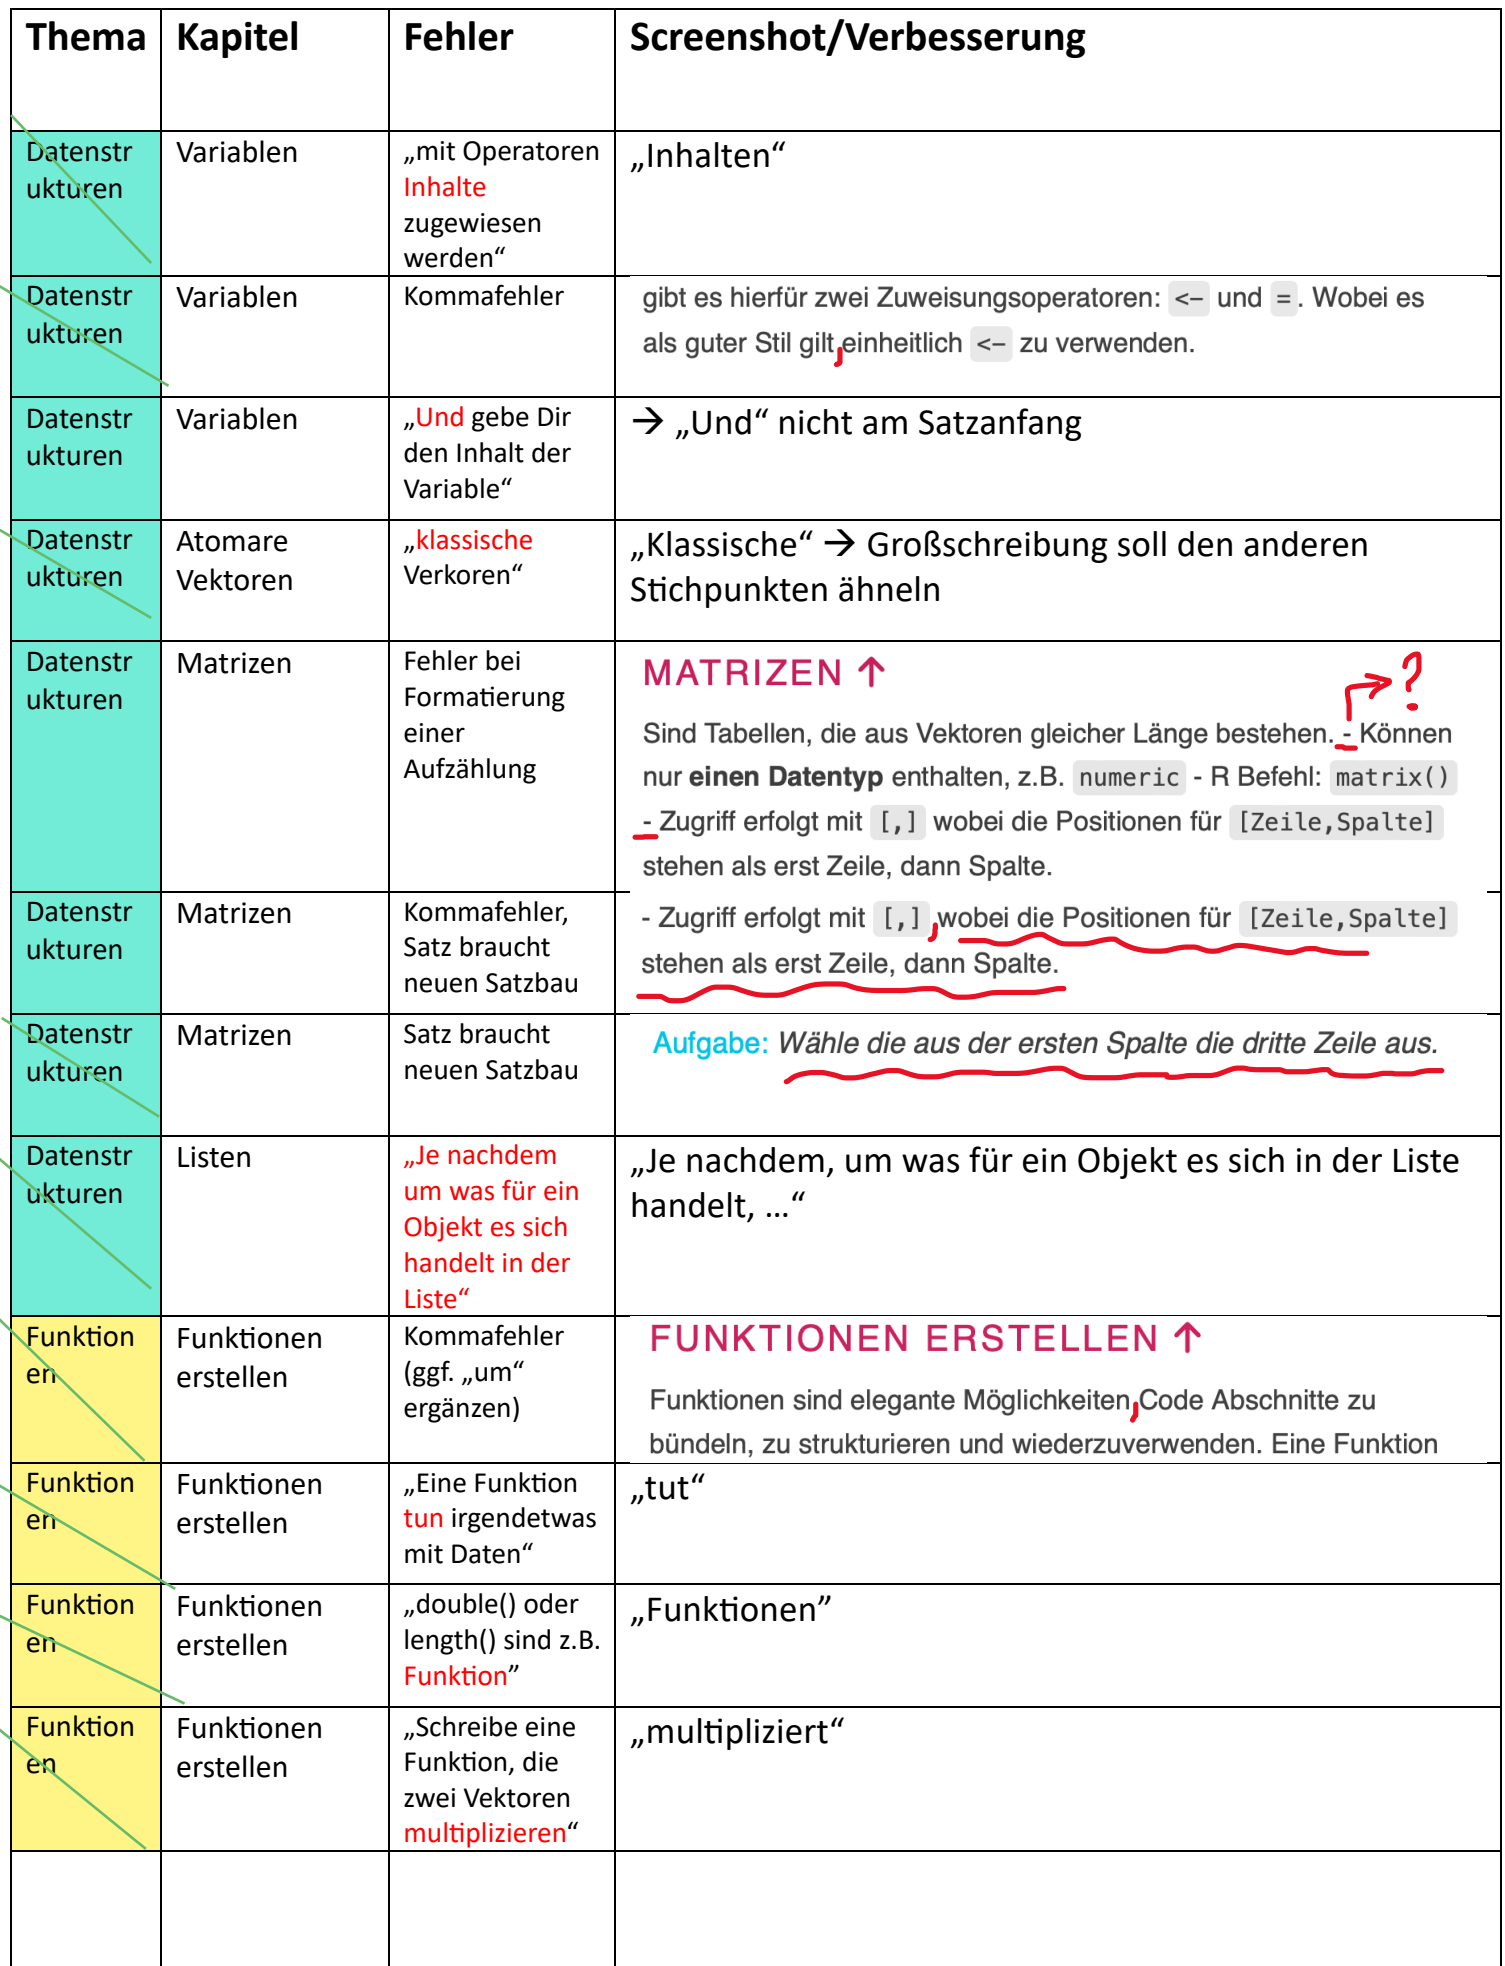 Thema Kapitel Fehler Screenshot/Verbesserung
Datenstr
ukturen
Variablen
„mit Operatoren
Inhalte
zugewiesen
werden“
„Inhalten“
Datenstr
ukturen
Variablen
Kommafehler
gibt es hierfür zwei Zuweisungsoperatoren: <– und =. Wobei es
als guter Stil gilt, einheitlich <– zu verwenden.
Datenstr
ukturen
Variablen
„Und gebe Dir
den Inhalt der
Variable“
→ „Und“ nicht am Satzanfang
Datenstr
ukturen
Atomare
Vektoren
„klassische
Verkoren“
„Klassische“ → Großschreibung soll den anderen
Stichpunkten ähneln
Datenstr
ukturen
Matrizen
Fehler bei
Formatierung
einer
Aufzählung
MATRIZEN ↑
?
Sind Tabellen, die aus Vektoren gleicher Länge bestehen. - Können
nur einen Datentyp enthalten, z.B. numeric - R Befehl: matrix()
- Zugriff erfolgt mit [,] wobei die Positionen für [Zeile,Spalte]
stehen als erst Zeile, dann Spalte.
Datenstr
ukturen
Matrizen
Kommafehler,
Satz braucht
neuen Satzbau
- Zugriff erfolgt mit [,] , wobei die Positionen für [Zeile,Spalte]
stehen als erst Zeile, dann Spalte.
Datenstr
ukturen
Matrizen
Satz braucht
neuen Satzbau
Aufgabe: Wähle die aus der ersten Spalte die dritte Zeile aus.
Datenstr
ukturen
Listen
„Je nachdem
um was für ein
Objekt es sich
handelt in der
Liste“
„Je nachdem, um was für ein Objekt es sich in der Liste
handelt, …“
Funktion
en
Funktionen
erstellen
Kommafehler
(ggf. „um“
ergänzen)
FUNKTIONEN ERSTELLEN ↑
Funktionen sind elegante Möglichkeiten, Code Abschnitte zu
bündeln, zu strukturieren und wiederzuverwenden. Eine Funktion
Funktion
en
Funktionen
erstellen
„Eine Funktion
tun irgendetwas
mit Daten“
„tut“
Funktion
en
Funktionen
erstellen
„double() oder
length() sind z.B.
Funktion”
„Funktionen”
Funktion
en
Funktionen
erstellen
„Schreibe eine
Funktion, die
zwei Vektoren
multiplizieren“
„multipliziert“